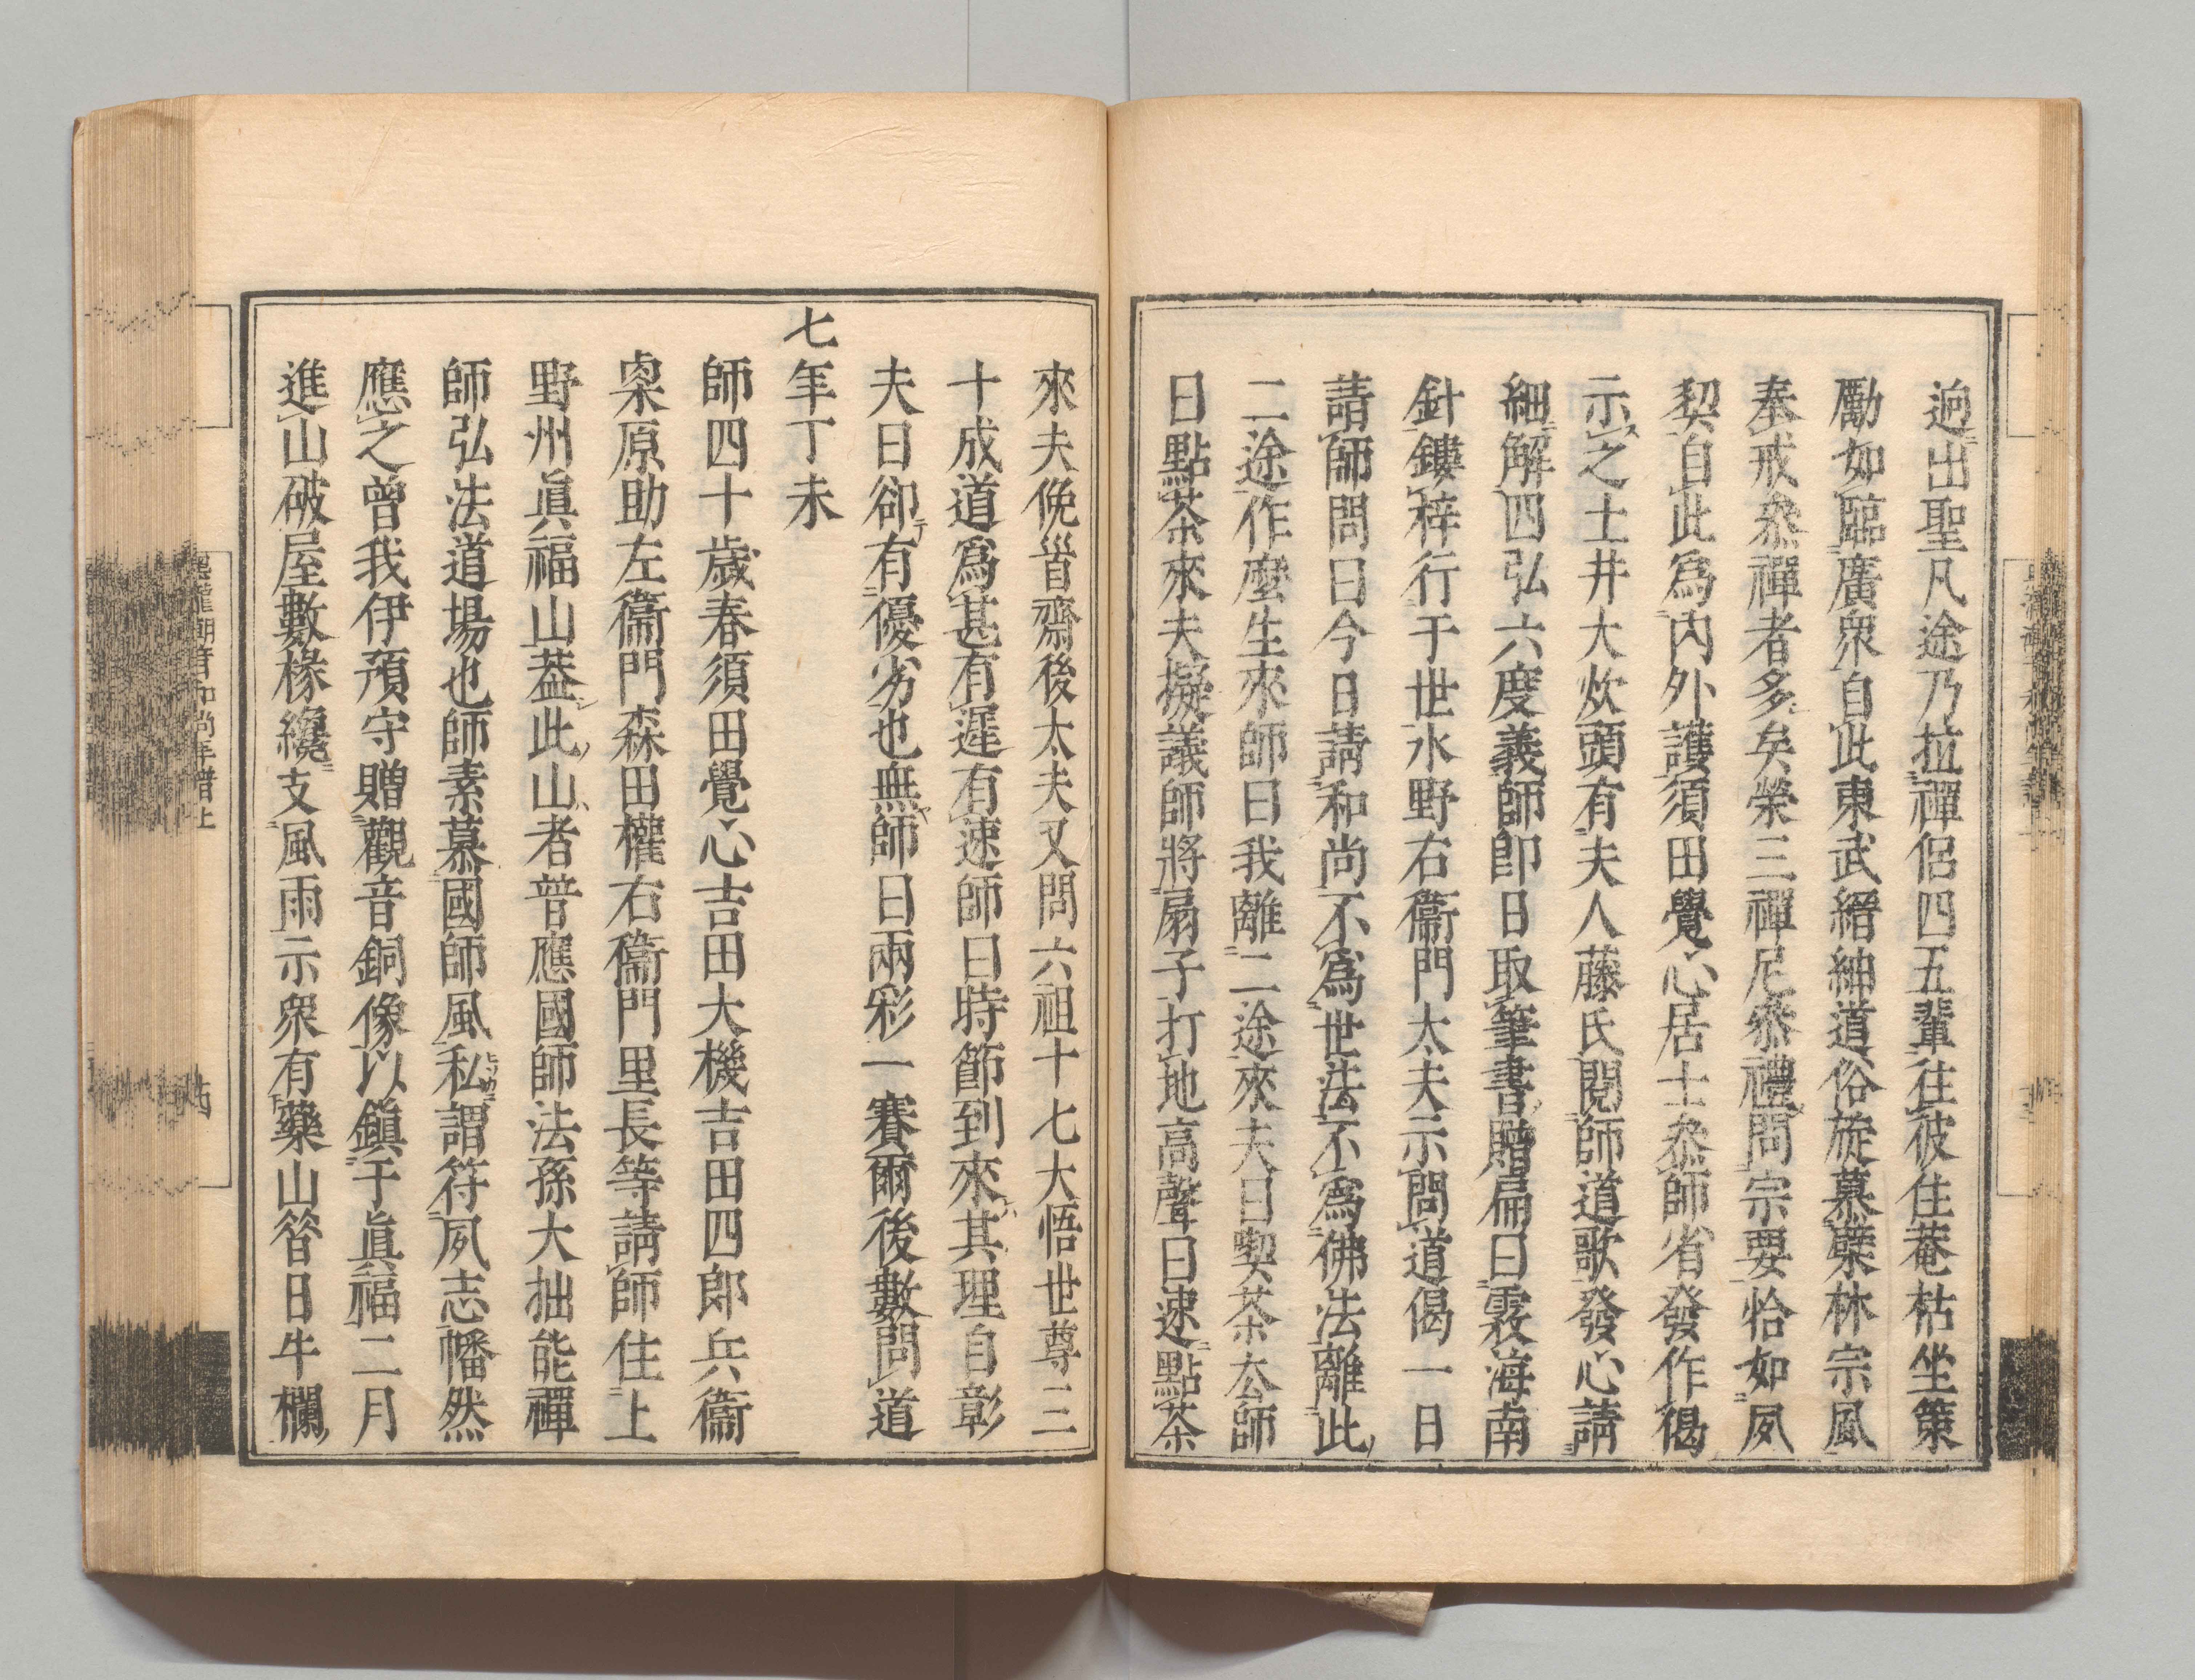 逈出聖凡途乃拉禪侶四五輩往彼住菴枯坐策
勵如臨廣衆自此東武縉紳道俗旋慕蘗林宗風
奉戒叅禪者多矣榮三禪尼叅禮問宗要恰如夙
契自此爲内外護須田覺心居士叅師省發作偈
示之土井大炊頭有夫人藤氏閱師道歌發心請
細解四弘六度義師即日取筆書贈扁曰霧海南
針鏤梓行于世水野右衞門太夫示問道偈一日
請師問曰今日請和尚不爲世法不爲佛法離此
二途作麼生來師曰我離二途來夫曰喫茶厺師
曰點茶來夫擬議師將扇子打地高聲曰速點茶
來夫俛首齋後太夫又問六祖十七大悟世尊三
十成道爲甚有遲有速師曰時節到來其理自彰
夫曰卻有優劣也無師曰兩彩一賽爾後數問道
七年丁未
師四十歲春須田覺心吉田大機吉田四郎兵衞
桒原助左衞門森田權右衞門里長等請師住上
野州眞福山葢此山者普應國師法孫大拙能禪
師弘法道場也師素慕國師風私謂符夙志幡然
應之曾我伊預守贈觀音銅像以鎭于眞福二月
進山破屋數椽纔支風雨示衆有藥山笿日牛欄